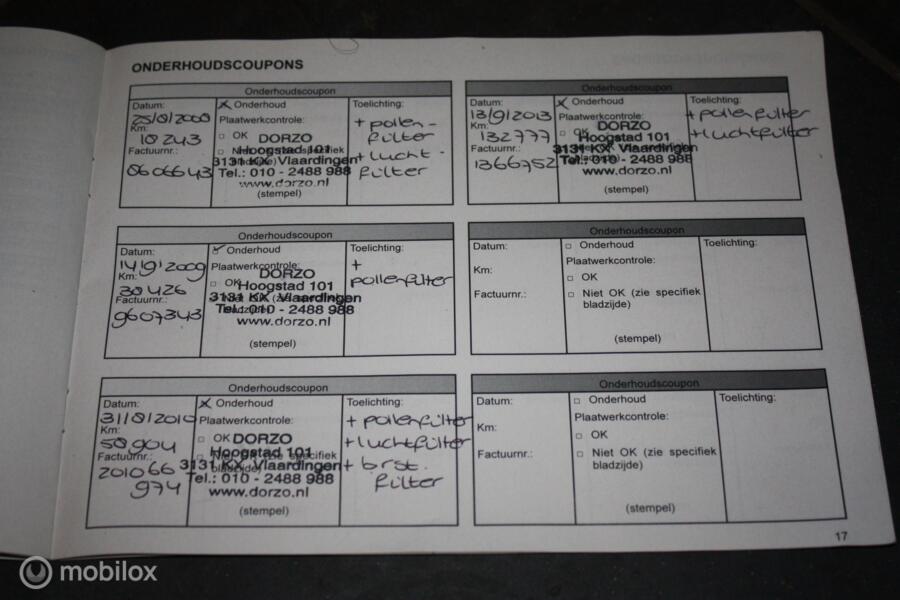 ONDERHOUDSCOUPONS
Onderhoudscoupon
Datum:
25/8/2008
Km:
18243
Factuurnr.:
8606643
Onderhoud
Plaatwerkcontrole:
OK
DORZO
Hoogstad 101
3131 KX Vlaardingen
Tel.: 010 - 2488 988
www.dorzo.nl
(stempel)
Toelichting:
+ pollen-
filter
+ lucht-
filter
Onderhoudscoupon
Datum:
13/9/2013
Km:
132777
Factuurnr.:
1366752
Onderhoud
Plaatwerkcontrole:
OK
DORZO
Hoogstad 101
3131 KX Vlaardingen
Tel.: 010 - 2488 988
www.dorzo.nl
(stempel)
Toelichting:
+ pollenfilter
+ luchtfilter
Onderhoudscoupon
Datum:
14/9/2009
Km:
38426
Factuurnr.:
9607343
Onderhoud
Plaatwerkcontrole:
OK
DORZO
Hoogstad 101
3131 KX Vlaardingen
Tel.: 010 - 2488 988
www.dorzo.nl
(stempel)
Toelichting:
+
pollenfilter
Onderhoudscoupon
Datum:
Km:
Factuurnr.:
Onderhoud
Plaatwerkcontrole:
OK
Niet OK (zie specifiek
bladzijde)
(stempel)
Toelichting:
Onderhoudscoupon
Datum:
31/8/2010
Km:
58904
Factuurnr.:
201066
974
Onderhoud
Plaatwerkcontrole:
OK
DORZO
Hoogstad 101
3131 KX Vlaardingen
Tel.: 010 - 2488 988
www.dorzo.nl
(stempel)
Toelichting:
+ pollenfilter
+ luchtfilter
+ brst.
filter
Onderhoudscoupon
Datum:
Km:
Factuurnr.:
Onderhoud
Plaatwerkcontrole:
OK
Niet OK (zie specifiek
bladzijde)
(stempel)
Toelichting:
17
mobilox